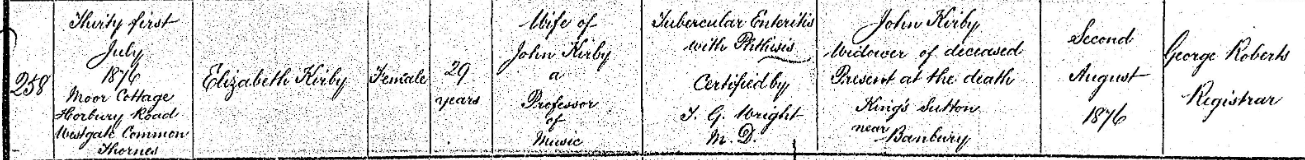 258
Thirty first
July
1876
Moor Cottage
Horbury Road
Westgate Common
Thornes
Elizabeth Kirby
Female
29
years
Wife of
John Kirby
a
Professor
of
Music
Tubercular Enteritis
with Phthisis
Certified by
T. G. Wright
M. D.
John Kirby
Widower of deceased
Present at the death
King's Sutton
near
Banbury
Second
August
1876
George Roberts
Registrar